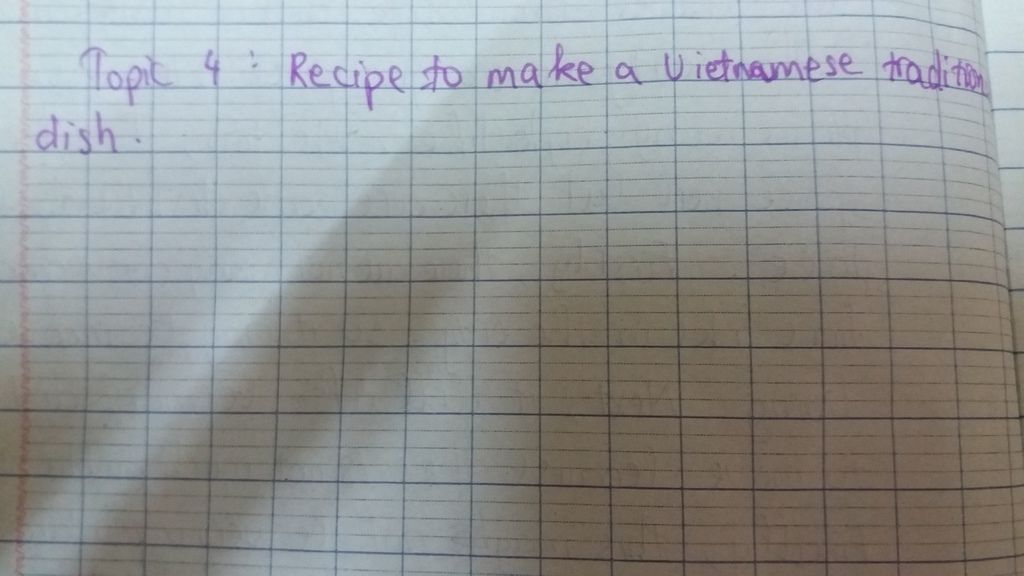 Topic 4 : Recipe to make a Vietnamese tradition
dish.